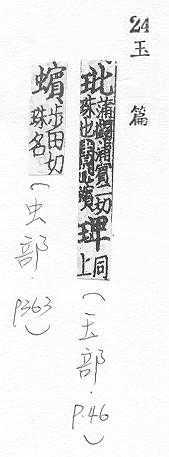 24
玉篇
玭蒲蠲蒲賓二切珠也 琕同上(玉部.P.46)
蠙步田切珠名(虫部.P363)